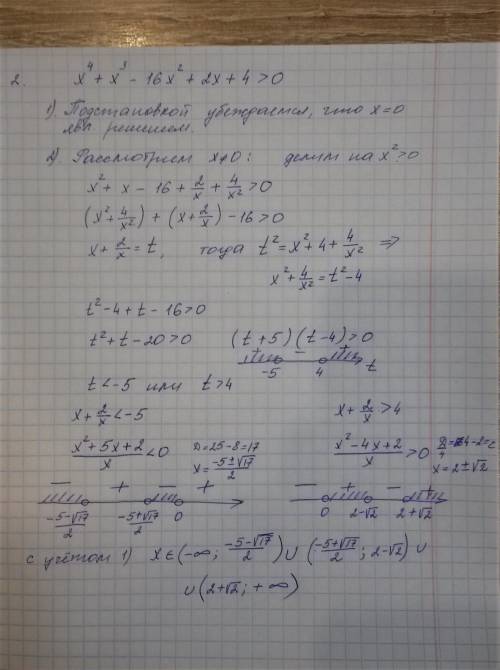 2. x⁴ + x³ - 16x² + 2x + 4 > 0
1). Подстановкой убеждаемся, что x=0
явл. решением.
2). Рассмотрим x≠0: делим на x²>0
x² + x - 16 + 2/x + 4/x² > 0
(x² + 4/x²) + (x + 2/x) - 16 > 0
x + 2/x = t, тогда t² = x² + 4 + 4/x² ⇒
x² + 4/x² = t² - 4
t² - 4 + t - 16 > 0
t² + t - 20 > 0 (t+5)(t-4) > 0
+ - +
-5 4 t
t < -5 или t > 4
x + 2/x < -5 x + 2/x > 4
(x² + 5x + 2)/x < 0 D = 25 - 8 = 17 (x² - 4x + 2)/x > 0 D/4 = 4 - 2 =
x = (-5 ± √17)/2 x = 2 ± √2
- + - + - + - +
(-5-√17)/2 (-5+√17)/2 0 0 2-√2 2+√2
с учётом 1) x ∈ (-∞; (-5-√17)/2) ∪ ((-5+√17)/2; 2-√2) ∪
∪ (2+√2; +∞)